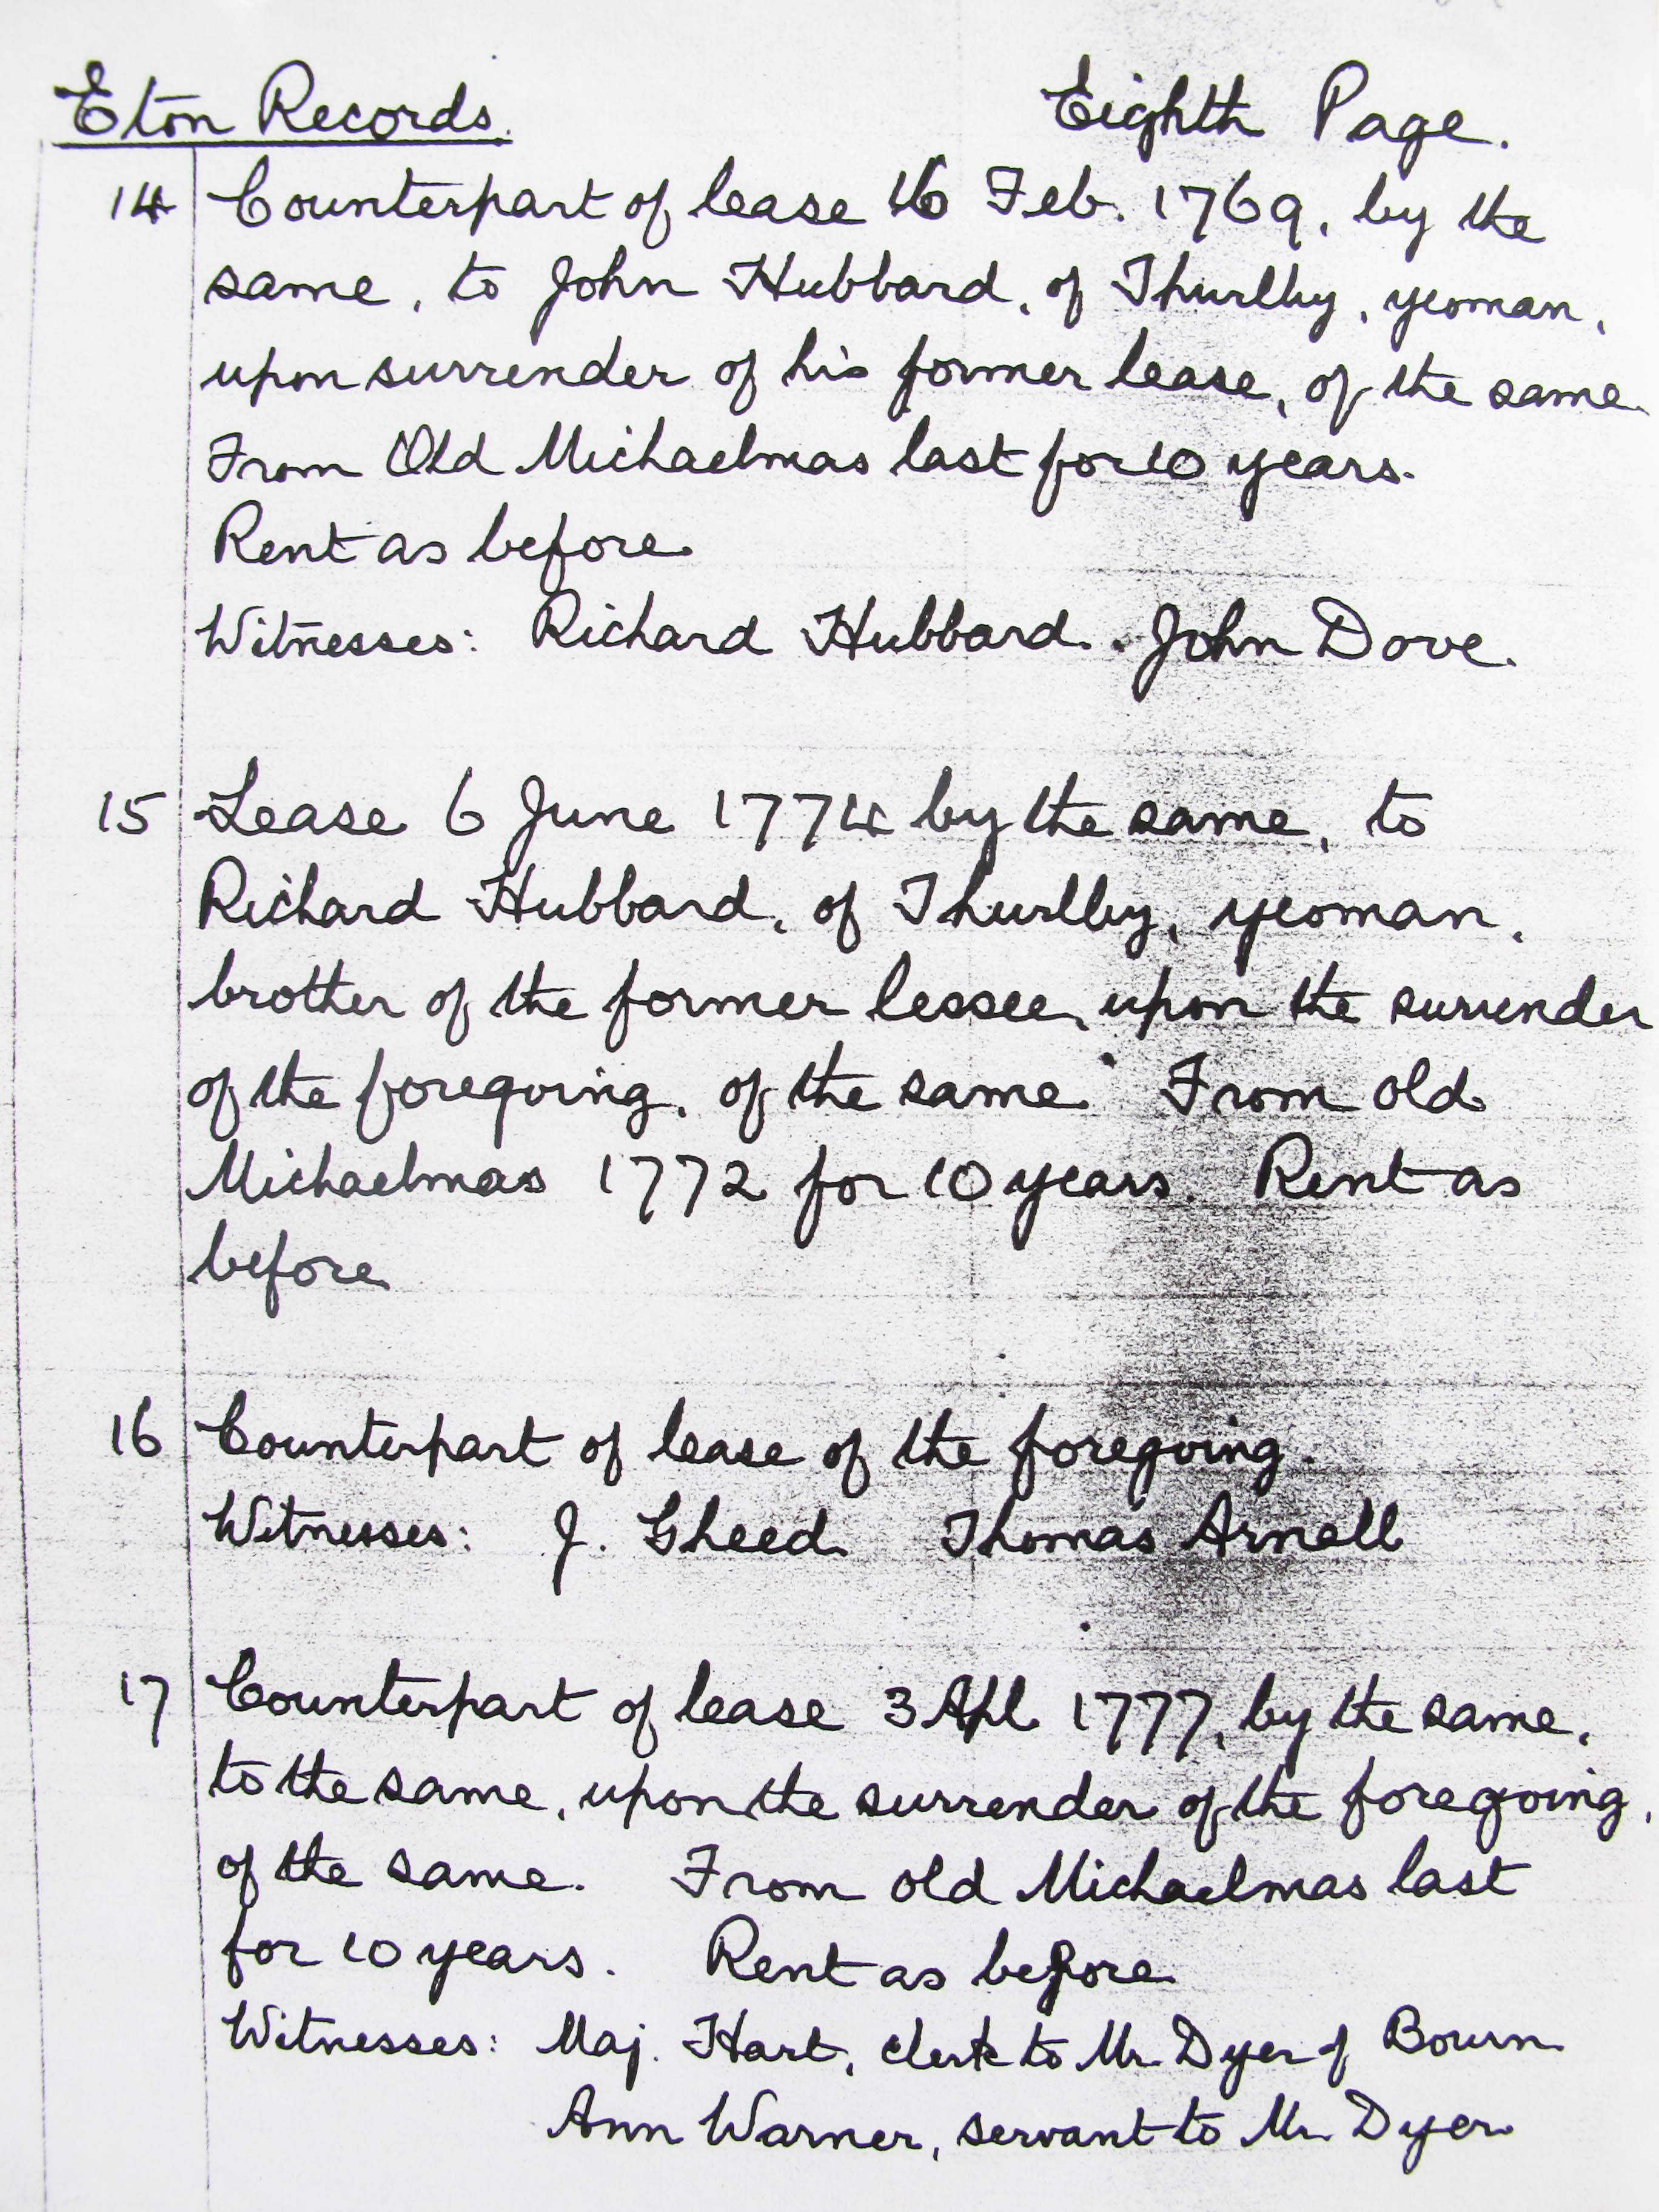 Eton Records. Eighth Page.
14 Counterpart of lease 16 Feb. 1769, by the
same, to John Hubbard, of Thurlby, yeoman,
upon surrender of his former lease, of the same.
From Old Michaelmas last for 10 years.
Rent as before.
Witnesses: Richard Hubbard. John Dove.
15 Lease 6 June 1774 by the same, to
Richard Hubbard, of Thurlby, yeoman,
brother of the former lessee, upon the surrender
of the foregoing, of the same. From old
Michaelmas 1772 for 10 years. Rent as
before
16 Counterpart of lease of the foregoing.
Witnesses: J. Gheed Thomas Arnall
17 Counterpart of lease 3 Apl 1777, by the same,
to the same, upon the surrender of the foregoing,
of the same. From old Michaelmas last
for 10 years. Rent as before
Witnesses: Maj. Hart, clerk to Mr. Dyer of Bourn
Ann Warner, servant to Mr. Dyer